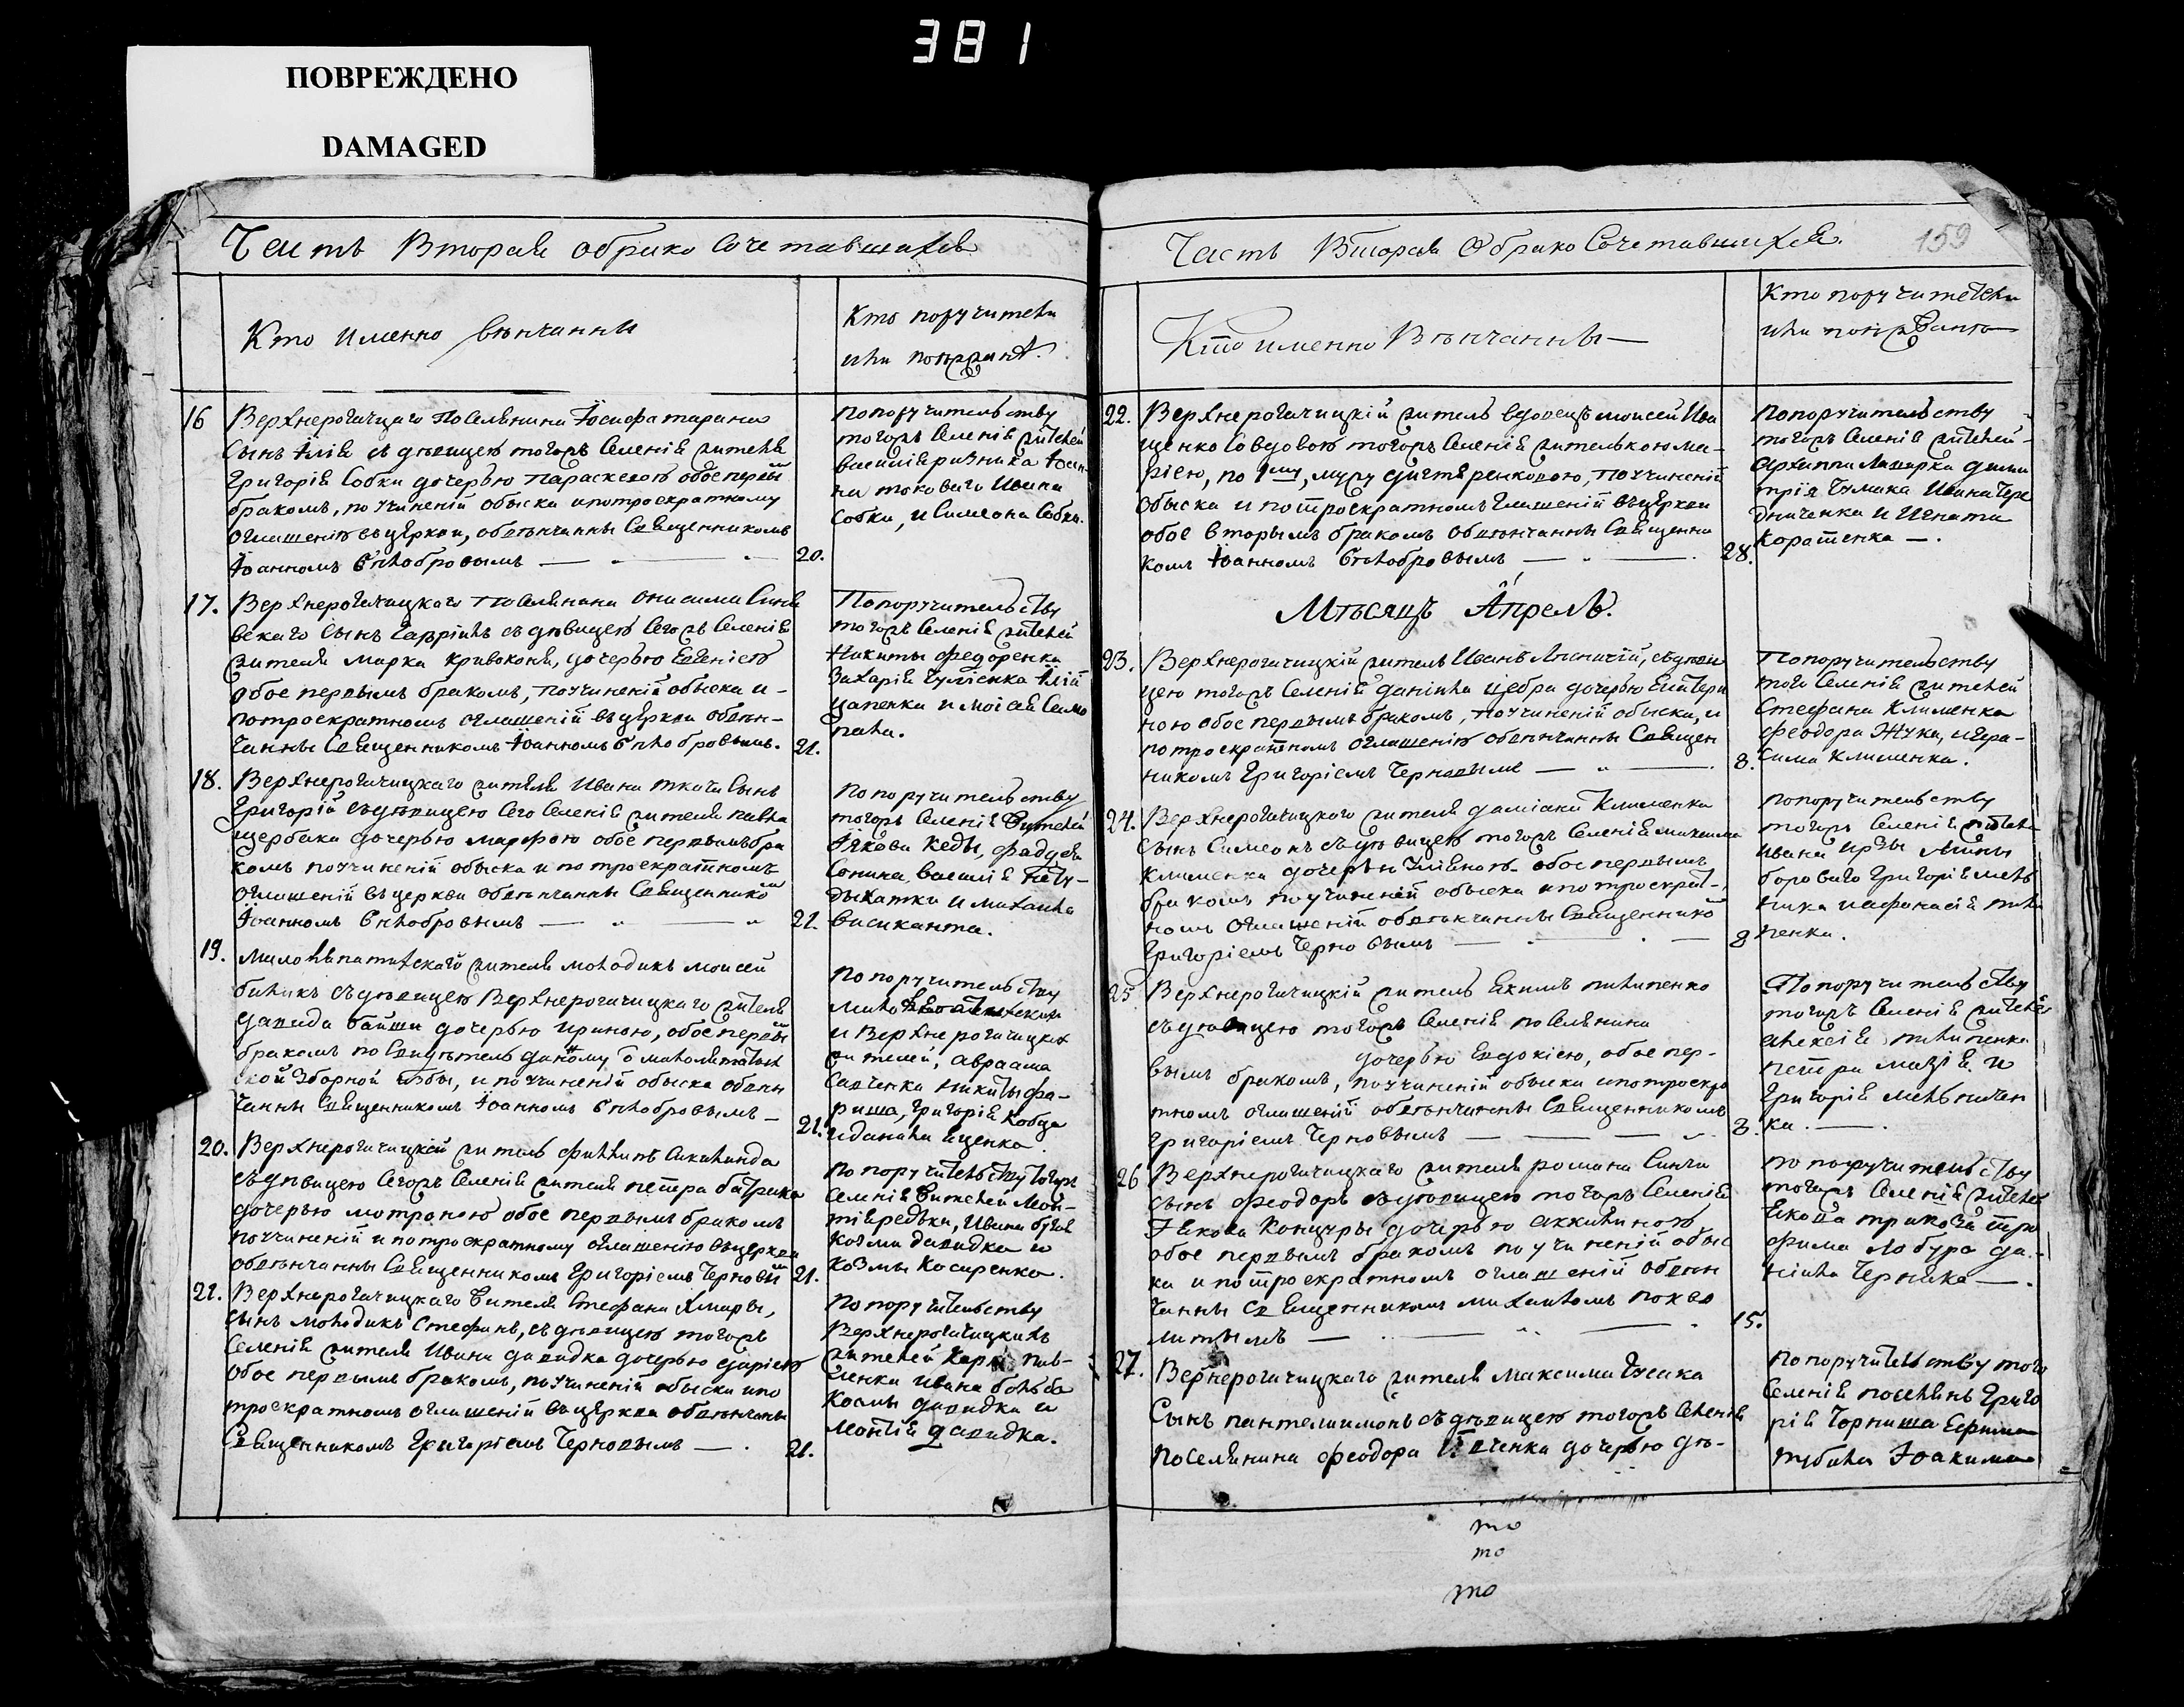 381
ПОВРЕЖДЕНО
DAMAGED
Часть Вторая обрако Сочетавшихся
Кто именно вѣнчанны
Кто поручители
или поѣзжанѣ.
16 Верхнерогачицаго Поселянина Іосифа тарана
Сынъ Илія съ дѣвицею тогожъ Селенія жителя
Григорія Собки дочерью Параскевою обое первы
бракомъ, по учиненій обыска ипотроекратному
оглашенію въцеркви, обвѣнчанны Священникомъ
Іоанномъ Бѣлобровымъ — „ — 20.
попоручительству
тогожъ Селенія жителей
василія ризника
Ивана
Собки, и Симеона Собки.
17. Верхнерогачицкаго поселянина онисима Синя
векаго Сынъ Гавріилъ съ дѣвицею Сегожъ Селенія
жителя Марка Кривоконя, дочерью Евгеніею
обое первымъ бракомъ, поучиненій обыска и-
потроекратномъ оглашеній въцеркви обвѣн-
чанны Священникомъ Іоанномъ Бѣлобровымъ. 21.
Попоручительству
тогожъ Селенія жителей
Никиты Федоренка
Захарія Илій
цапенка и Моісея Само
пала.
18. Верхнерогачицкаго жителя Ивана ткача Сынъ
Григорій съдѣвицею Сего Селенія жителя павла
щербака дочерью марфою обое первымъ бра
комъ поучиненій обыска и по троекратномъ
оглашеній въцеркви обвѣнчанны Священнико
Іоанномъ Бѣлобровымъ — „ — „ 21.
По поручительству
тогожъ Селенія жителей
Якова Кеды, фадѣя
Сонина, василія
и михаила
висиканта.
19. жителя молодикъ моисей
биликъ съдѣвицею Верхнерогачицкаго жителя
давида байши дочерью Ириною, обое первы
бракомъ по Свидѣтель данному
ской Зборной избы, и поучиненій обыска обвѣн
чанны Священникомъ Іоанномъ Бѣлобровымъ — 21.
По поручительству
и Верхнерогачицкихъ
жителей, авраама
Савченка никиты фа-
риша, Григорія Кобца
иданила яценка.
20. Верхнерогачицкій житель филлипъ
съдѣвицею Сегожъ Селенія жителя петра батрака
дочерью мотроною обое первымъ бракомъ
поучиненій и потроекратному оглашенію въцеркви
обвѣнчанны Священникомъ Григоріемъ Черновы 21.
По поручительству тогожъ
Селенія жителей Мон-
тія редька, Ивана
Козми давидка и
Козмы Косиренко.
21. Верхнерогачицкаго жителя Стефана Хмары,
сынъ молодикъ Стефанъ, съдѣвицею тогожъ
Селенія жителя Ивана давидка дочерью даріею
Обое первымъ бракомъ, поучиненій обыска ипо
троекратномъ оглашеній въцеркви обвѣнчаны
Священникомъ Григоріемъ Черновымъ — . 21.
По поручительству
Верхнерогачицкихъ
жителей Карпа пав-
ленка ивана
Космы давидка и
Монтія давидка.
Часть Вторая Обрако Сочетавшихся.
159
Кто именно Вѣнчанны —
Кто поручители
или поѣзжанѣ
22. Верхнерогачицкій житель вдовецъ моисей Ива
щенко Совдовою тогожъ Селенія жителькою ма-
ріею, по 1му, мужу поучиненій
обыска и потроекратномъ оглашеній въцеркви
обое вторымъ бракомъ обвѣнчанны Священни
комъ Іоанномъ Бѣлобровымъ — „ — 28.
попоручительству
тогожъ Селенія жителей-
архиппа Лазарка дими
трія Чумака Ивана Чере
дниченка и Игната
Коратенка — .
Мѣсяцъ Апрель.
23. Верхнерогачицкій житель Иванъ Лисничій, съдѣви
цею тогожъ Селенія даніила цебра дочерью Екатери
ною обое первымъ бракомъ, поучиненій обыска, и
потроекратномъ оглашенію обвѣнчанны Священ
никомъ Григоріемъ Черновымъ — „ — 8.
Попоручительству
того Селенія жителей
Стефана Клименка
Феодора Жука, игера-
сима Клименка.
24. Верхнерогачицкаго жителя даміана Клименка
сынъ Симеонъ съдѣвицею тогожъ Селенія михаила
Клименка дочерью обое первымъ
бракомъ поучиненій обыска ипотроекрат-
номъ оглашеній обвѣнчанны Священнико
Григоріемъ Черновымъ — . — 8
попоручительству
тогожъ Селенія жителя
ивана Мины
бороваго Григорія мель
ника иафанасія пили
пенка.
25 Верхнерогачицкій житель Екимъ пилипенко
съдѣвицею тогожъ Селенія поселянина
дочерью Евдокіею, обое пер-
вымъ бракомъ, поучиненій обыска ипотроекра
тномъ оглашеній обвѣнчанны Священникомъ
Григоріемъ Черновымъ — — — 8.
Попоручительству
тогожъ Селенія жителей
алексія пилипенка
петра мазія и
Григорія мельничен
ка. — .
26 Верхнерогачицкаго жителя романа Синчи
сынъ феодоръ съдѣвицею тогожъ Селенія
Іякова Концуры дочерью аккилиною,
обое первымъ бракомъ поучиненій обыс
ка ипотроекратномъ оглашеній обвѣн
чанны Священникомъ михаиломъ
литымъ — „ — 15.
по поручительству
тогожъ Селенія жителей
Екова трикоза тро
фима Лобура да-
ніила Черника — .
27. Вернерогачицкаго жителя максима Гусака
Сынъ пантелимонъ съдѣвицею тогожъ селенія
поселянина феодора дочерью дѣ-
попоручительству того
Селенія поселянъ Григо
рія Чорниша Ефима
Іоакима
то
то
то